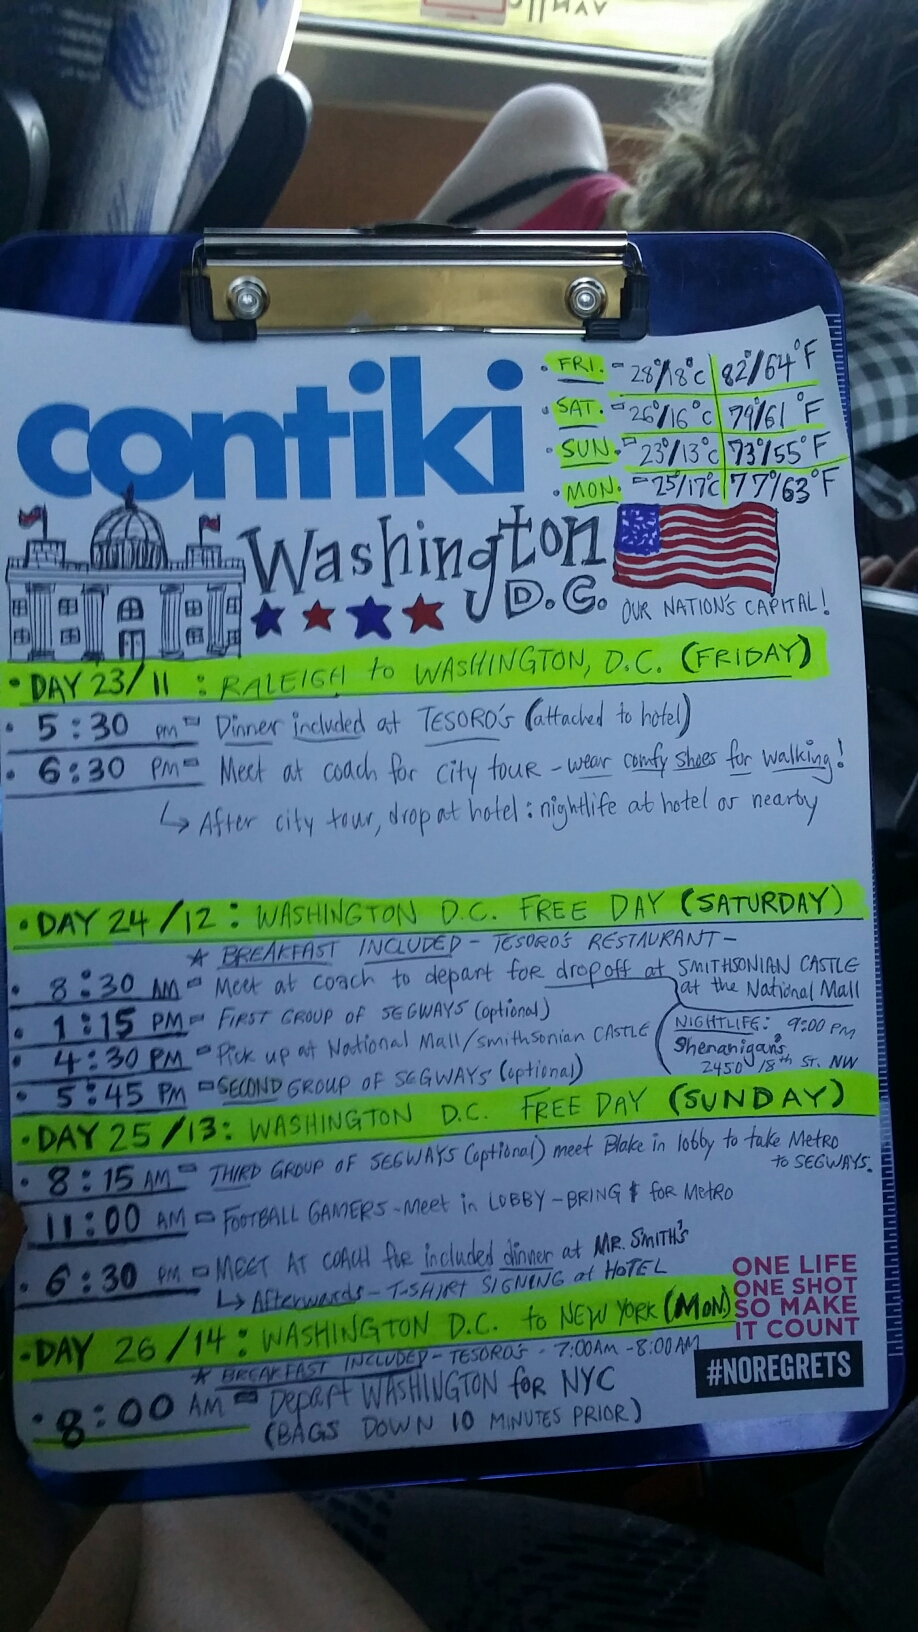 contiki
• FRI. - 28°/18°C | 82°/64°F
• SAT. - 26°/16°C | 79°/61°F
• SUN. - 23°/13°C | 73°/55°F
• MON. - 25°/17°C | 77°/63°F
Washington
D.C.
OUR NATION'S CAPITAL!
• DAY 23/11 : RALEIGH to WASHINGTON, D.C. (FRIDAY)
• 5:30 pm - Dinner included at TESORO's (attached to hotel)
• 6:30 PM - Meet at coach for city tour - wear comfy shoes for walking!
↳ After city tour, drop at hotel : nightlife at hotel or nearby
• DAY 24/12 : WASHINGTON D.C. FREE DAY (SATURDAY)
★ BREAKFAST INCLUDED - TESORO'S RESTAURANT -
• 8:30 AM - Meet at coach to depart for dropoff at SMITHSONIAN CASTLE
at the National Mall
• 1:15 PM - FIRST GROUP OF SEGWAYS (optional)
• 4:30 PM - Pick up at National Mall/Smithsonian CASTLE
• 5:45 PM - SECOND GROUP OF SEGWAYS (optional)
NIGHTLIFE: 9:00 PM
Shenanigan's
2450 18th ST. NW
• DAY 25/13: WASHINGTON D.C. FREE DAY (SUNDAY)
• 8:15 AM - THIRD GROUP OF SEGWAYS (optional) meet Blake in lobby to take Metro
to SEGWAYS.
11:00 AM - FOOTBALL GAMERS - Meet in LOBBY - BRING $ for Metro
• 6:30 PM - MEET AT COACH for included dinner at MR. SMITH'S
↳ Afterwards - T-SHIRT SIGNING at HOTEL
• DAY 26/14 : WASHINGTON D.C. to NEW YORK (MON)
★ BREAKFAST INCLUDED - TESORO'S - 7:00AM - 8:00AM
• 8:00 AM - Depart WASHINGTON for NYC
(BAGS DOWN 10 MINUTES PRIOR)
ONE LIFE
ONE SHOT
SO MAKE
IT COUNT
#NOREGRETS